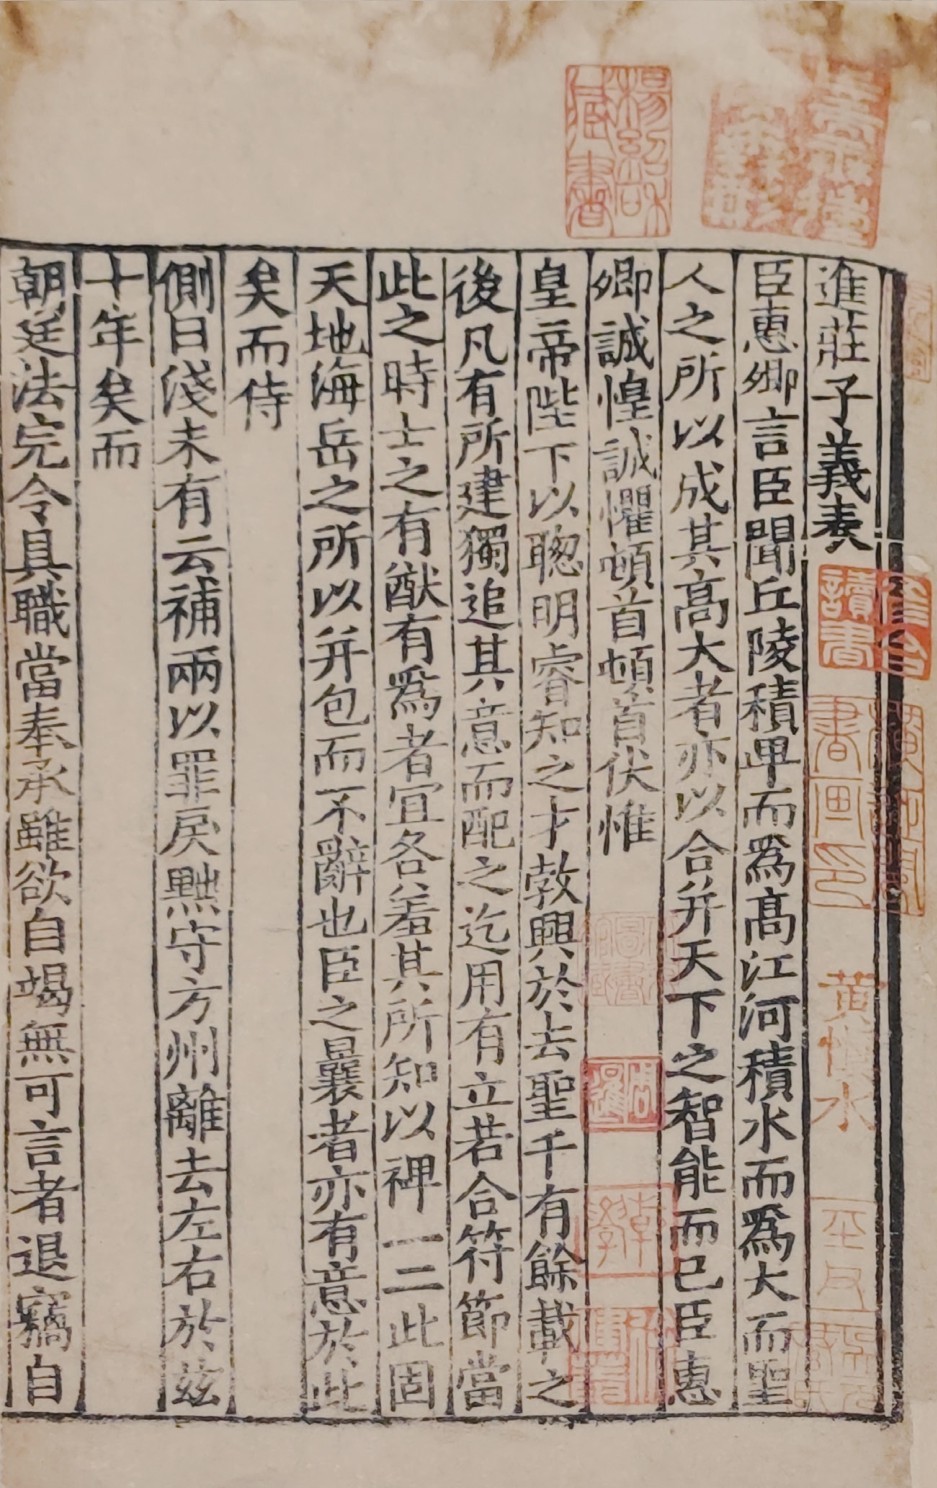 進莊子義表
臣惠卿言臣聞丘陵積卑而爲髙江河積水而爲大而聖
人之所以成其髙大者亦以合并天下之智能而已臣惠
卿誠惶誠懼頓首頓首伏惟
皇帝陛下以聦明睿知之才敦興於去聖千有餘載之
後凡有所建獨追其意而配之迄用有立若合符節當
此之時士之有猷有爲者宜各羞其所知以裨一二此固
天地海岳之所以并包而不辭也臣之曩者亦有意於此
矣而侍
側日淺未有云補兩以罪戾黜守方州離去左右於兹
十年矣而
朝廷法完令具職當奉承雖欲自竭無可言者退竊自
楊紹和
藏書
讀書
書画印
黄慎水